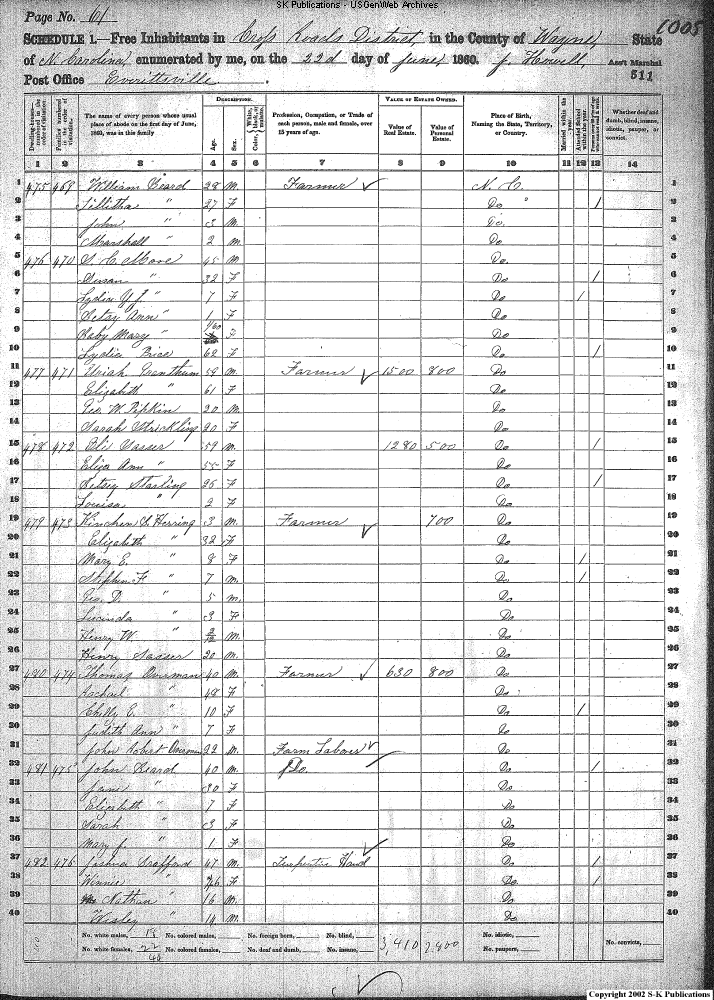 SK Publications - USGenWeb Archives
Page No. 61
1005
SCHEDULE 1.—Free Inhabitants in Cross Roads District, in the County of Wayne, State
of N. Carolina, enumerated by me, on the 22d day of June, 1860. J. Howell, Ass't Marshal
Post Office Everittsville.
511
DESCRIPTION. VALUE OF ESTATE OWNED.
The name of every person whose usual place of abode on the first day of June, 1860, was in this family.
Age. Sex. Color,
Profession, Occupation, or Trade of each person, male and female, over 15 years of age.
Value of Real Estate. Value of Personal Estate.
Place of Birth, Naming the State, Territory, or Country.
Married within the year. Attended School within the year.
Whether deaf and dumb, blind, insane, idiotic, pauper, or convict.
1 2 3 4 5 6 7 8 9 10 11 12 13 14
1 475 469 William Beard 28 M. Farmer N. C. 1
2 " 27 F Do / 2
3 John " 3 M Do. 3
4 Marshall " 2 M Do 4
5 476 470 S. C. Moore 45 M Do. 5
6 Susan " 32 F Do / 6
7 Lydia " 7 F Do / 7
8 Ann " 1 F Do 8
9 Baby Mary " F Do 9
10 Lydia 62 F Do. / 10
11 477 471 Uriah Granthum 59 M. Farmer 1500 800 Do 11
12 Elizabeth " 61 F Do 12
13 Geo. W. Pipkin 20 M. Do 13
14 Sarah Strickling 20 F Do 14
15 478 472 Eli Sasser 59 M. 1280 500 Do / 15
16 Eliza Ann " 55 F Do 16
17 Betsey Starling 25 F Do / 17
18 Louisa " 2 F Do 18
19 479 473 Kinchen S. Herring 3 M. Farmer 700 Do 19
20 Elizabeth " 32 F Do 20
21 Mary E. " 8 F Do / 21
22 Stephen F. " 7 M. Do / 22
23 Geo. D. " 5 M. Do 23
24 Lucinda " 3 F Do 24
25 Henry W. " M. Do 25
26 Henry Sasser 20 M. Do 26
27 480 474 Thomas Overman 40 M. Farmer 630 800 Do 27
28 Rachael " 48 F Do 28
29 E. " 10 F Do / 29
30 Judith Ann " 7 F Do 30
31 John Robert Overman 22 M. Farm Labour Do 31
32 481 475 John Beard 40 M. Do. Do / 32
33 Jane " 30 F Do 33
34 Elizabeth " 7 F Do 34
35 Sarah " 3 F Do 35
36 Mary J. " 1 F Do 36
37 482 476 Joshua 47 M. Turpentine Hand Do / 37
38 Winnie " F Do. / 38
39 Nathan " 16 M. Do 39
40 Wesley " 14 M. Do 40
No. white males, 18 No. colored males, No. foreign born, No. blind, No. idiotic,
No. white females, 22 No. colored females, No. deaf and dumb, No. insane, 3,410 2,800 No. paupers, No. convicts,
40
Copyright 2002 S-K Publications